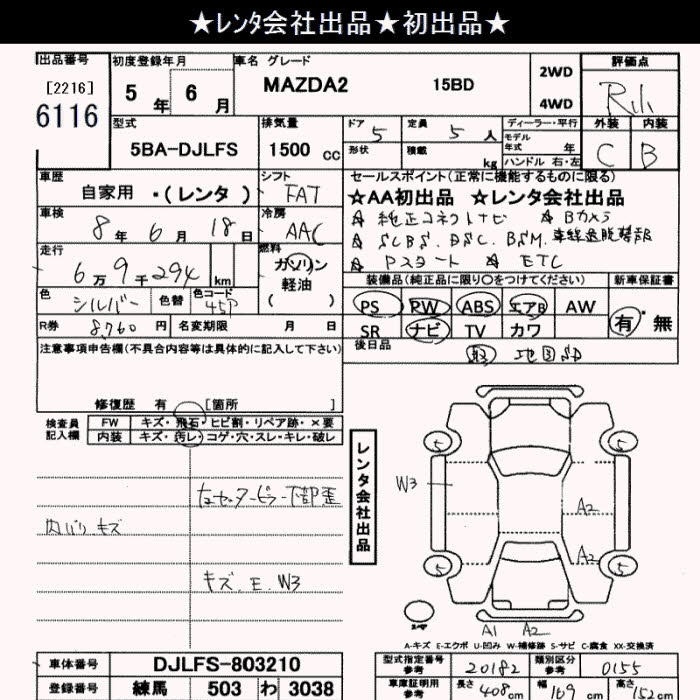 ★レンタ会社出品★初出品★
出品番号 初度登録年月 車名 グレード 評価点
[2216] 5年 6月 MAZDA2 15BD 2WD 4WD
6116 外装 内装
C B
型式 排気量 ドア 5 定員 5人 ディーラー・平行
5BA-DJLFS 1500cc 形状 積載 kg モデル年式 年 ハンドル 右・左
車歴 シフト セールスポイント(正常に機能するものに限る)
自家用・(レンタ) FAT ★AA初出品 ★レンタ会社出品
☆ 純正コネクトナビ ☆ Bカメラ
車検 冷房 ☆ SCBS. DSC. BSM. 車線逸脱警報
8年 6月 18日 AAC ☆ Pスタート ☆ ETC
走行 燃料 装備品(純正品に限り○をつけてください) 新車保証書
6万9千294km ガソリン 軽油 ( )
PS PW ABS エアB AW 有・無
色 シルバー 色替 色コード 45P SR ナビ TV カワ
R券 8760円 名変期限 月 日 後日品 地図SD
注意事項申告欄(不具合内容等は具体的に記入して下さい)
修復歴 有 [箇所 ]
検査員記入欄 FW キズ・飛石・ヒビ割・リペア跡・×要
内装 キズ・汚レ・コゲ・穴・スレ・キレ・破レ
左センターピラー下部歪
内バリ キズ
キズ.E.W3
レンタ会社出品
5 5
W3
A2
A2
5 5
A1 A2
A-キズ E-エクボ U-凹み W-補修跡 S-サビ C-腐食 XX-交換済
車体番号 DJLFS-803210 型式指定番号参考 20182 類別区分参考 0155
登録番号 練馬 503 わ 3038 車庫証明用参考 長さ 408cm 幅 169cm 高さ 152cm